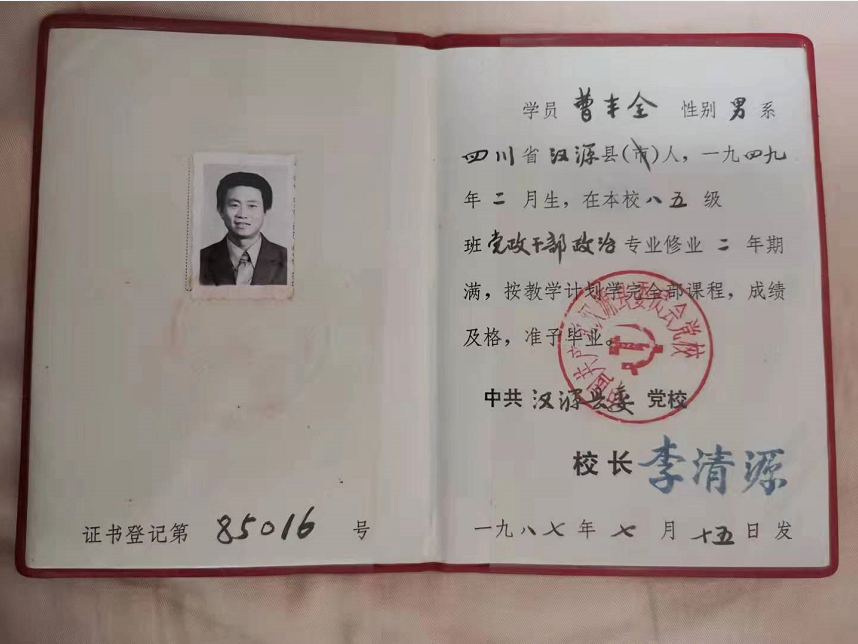 证书登记第 85016 号
学员 曹丰全 性别 男 系
四川省汉源县(市)人，一九四九
年 二 月生，在本校八五 级
班党政干部政治专业修业 二 年期
满，按教学计划学完全部课程，成绩
及格，准予毕业。
中国共产党汉源县委员会党校
中共 汉源县委 党校
校长 李清源
一九八七 年 七 月 十五 日 发